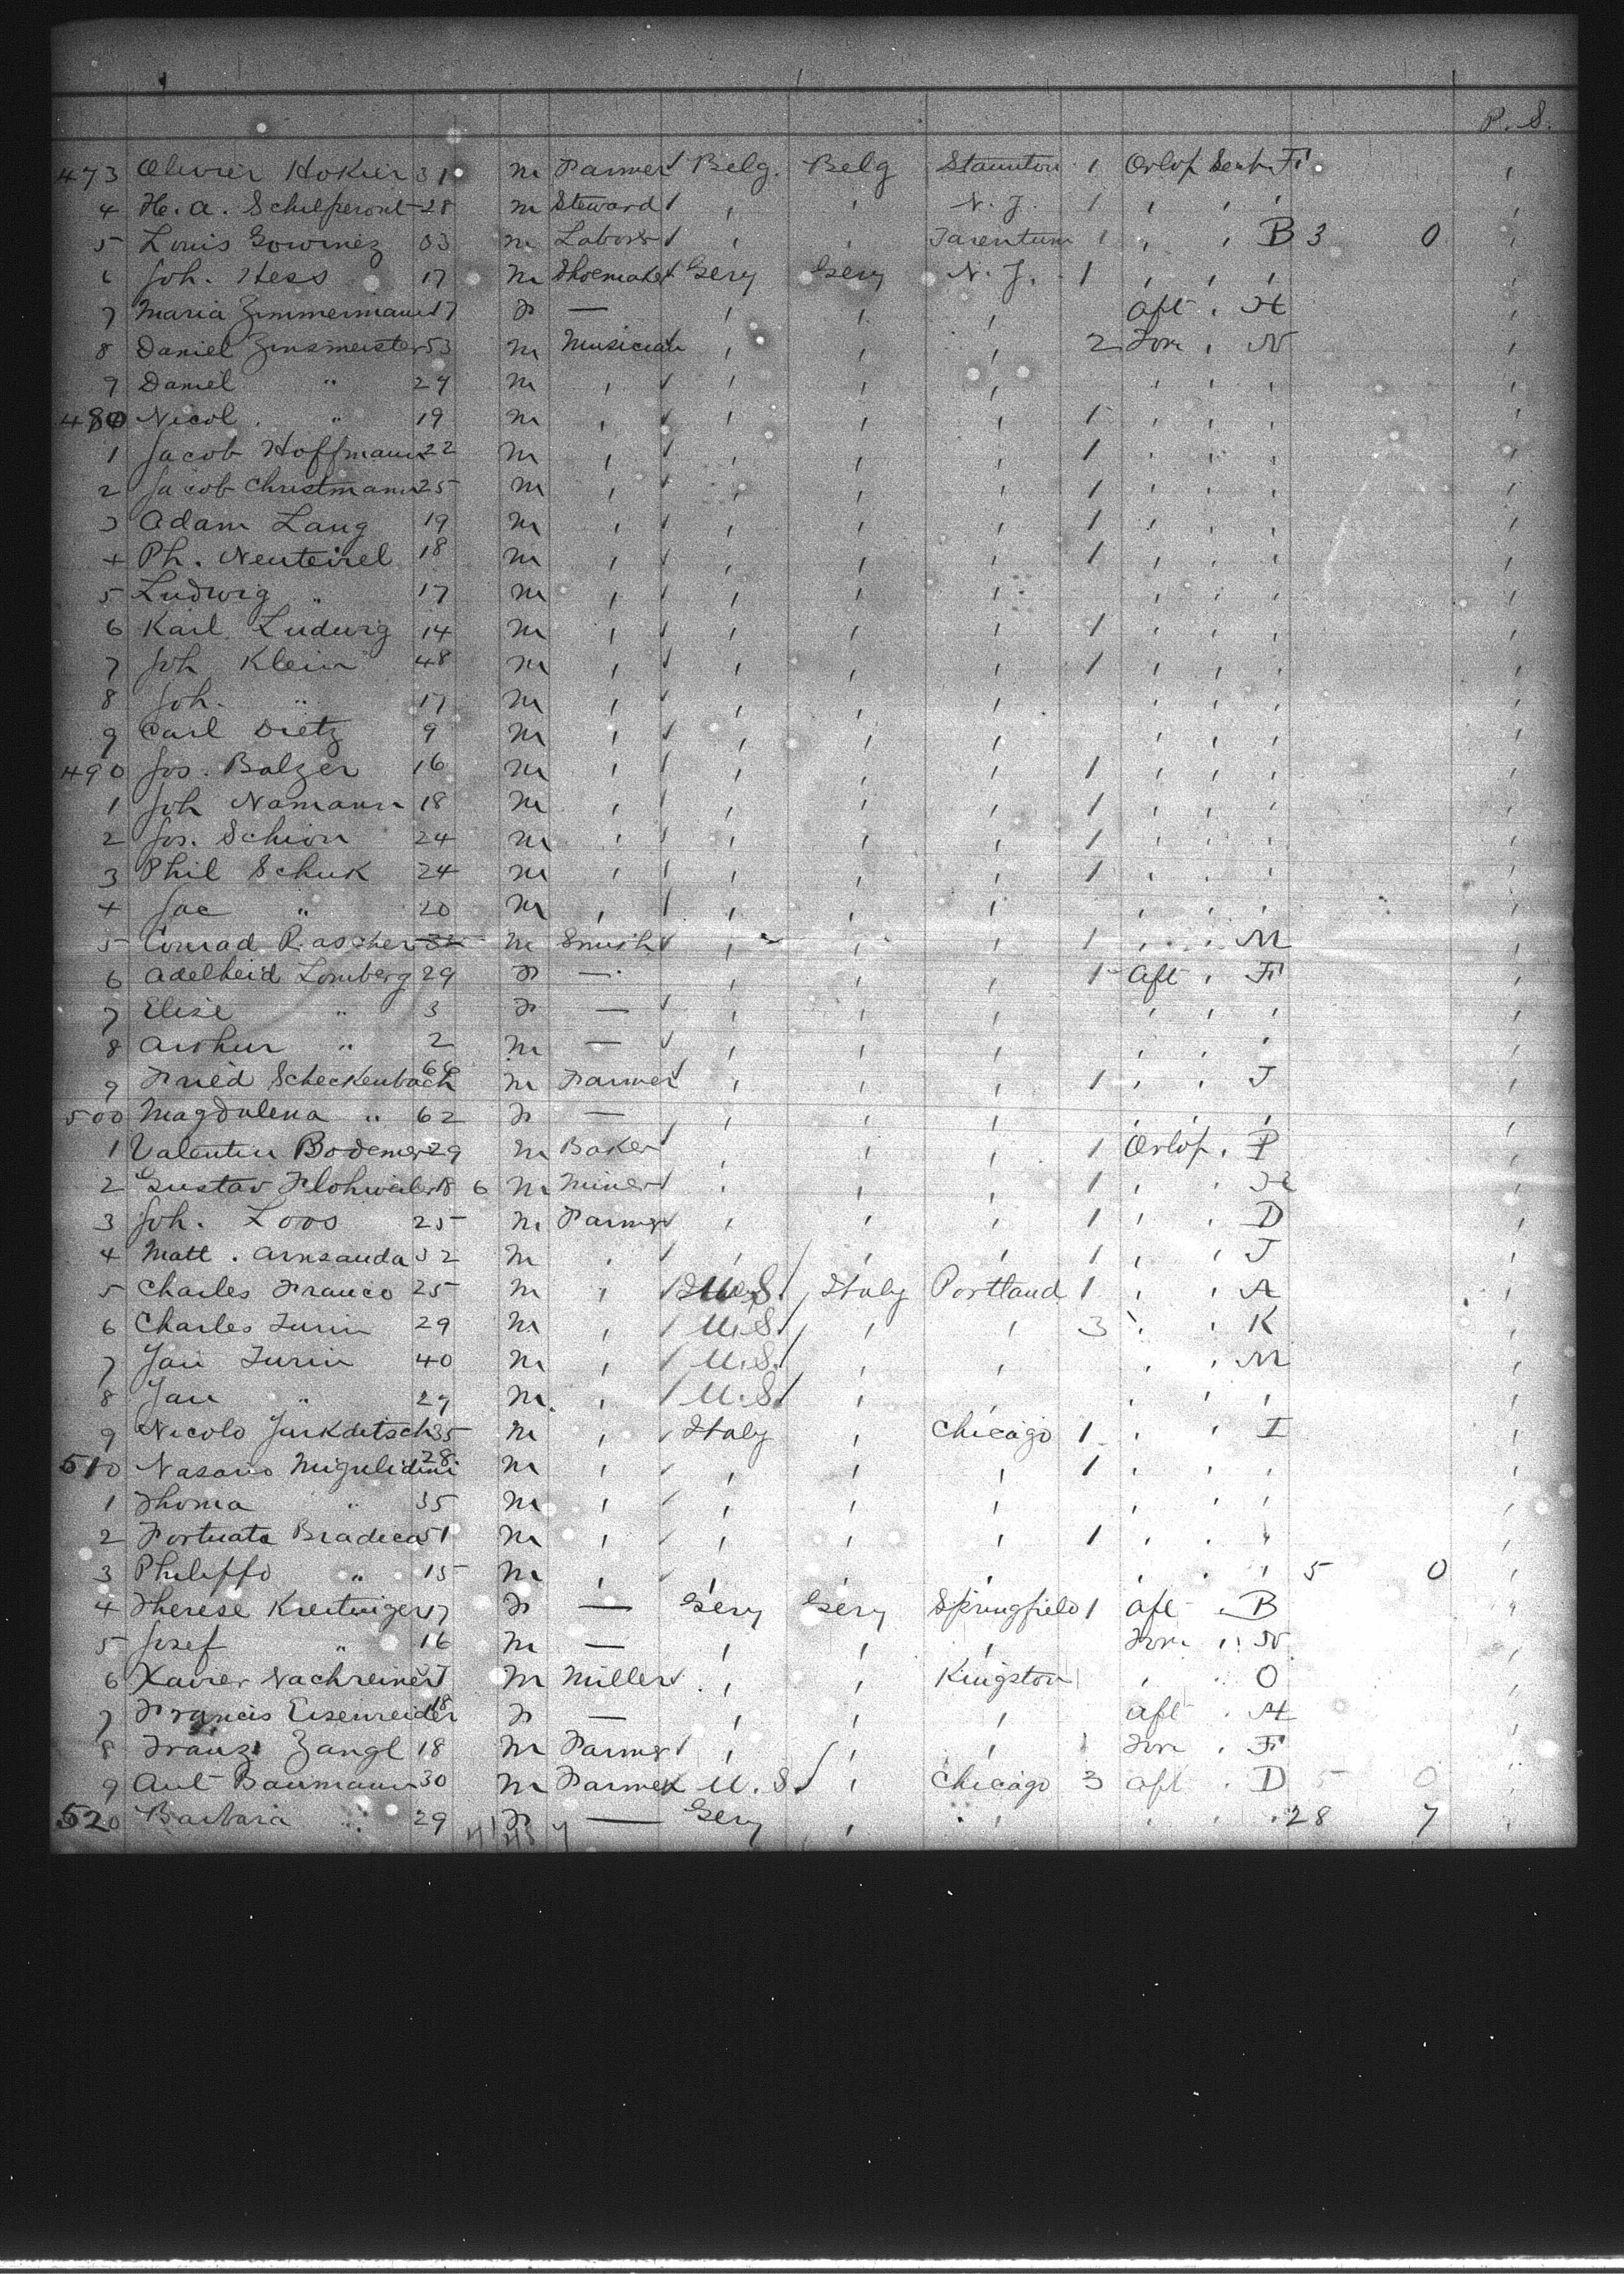 P. S.
473 Olivier Hokier 31 m Farmer Belg. Belg Staunton 1 Orlop Sent. F
4 H. A. Schilperont 28 m Steward , , N. J. 1 , , ,
5 Louis Gowinez 33 m Labor , , Tarentum 1 , , B 3 0 ,
6 Joh. Hess 17 m Shoemaker Gery Gery N. J. 1 , , ,
7 Maria Zimmermann 17 F — , , , Aft , H
8 Daniel Zinsmeister 53 m Musician , , , 2 For , N ,
9 Daniel " 29 m , , , , , , , ,
480 Nicol. " 19 m , , , , 1 , , , ,
1 Jacob Hoffmann 22 m , , , , 1 , , , ,
2 Jacob Christmann 25 m , , , , 1 , , , ,
3 Adam Lang 19 m , , , , 1 , , , ,
4 Ph. Neuteirel 18 m , , , , 1 , , , ,
5 Ludwig " 17 m , , , , , , , ,
6 Karl Ludwig 14 m , , , , 1 , , , ,
7 Joh Klein 48 m , , , , 1 , , , ,
8 Joh. " 17 m , , , , , , , ,
9 Carl Dietz 9 m , , , , , , , ,
490 Jos. Balzer 16 m , , , , 1 , , , ,
1 Joh Namann 18 m , , , , 1 , , , ,
2 Jos. Schion 24 m , , , , 1 , , , ,
3 Phil Schuk 24 m , , , , 1 , , , ,
4 Jac " 20 m , , , , , , , ,
5 Conrad Rascher 32 m Smith , , , 1 , , M ,
6 Adelheid Lomberg 29 F — , , , 1 Aft , F ,
7 Elise " 3 F — , , , , , , ,
8 Arthur " 2 m — , , , , , , ,
9 Fried Scheckenbach 66 m Farmer , , , 1 , , J ,
500 Magdalena " 62 F — , , , , , , ,
1 Valentin Bodemer 29 m Baker , , , 1 Orlop , P ,
2 Gustav Flohwiler 18 6 m Miner , , , 1 , , H ,
3 Joh. Loos 25 m Farmer , , , 1 , , D ,
4 Matt. Arnsauda 32 m , , , , 1 , , J ,
5 Charles Franco 25 m , U.S. Italy Portland 1 , , A ,
6 Charles Turin 29 m , U.S. , , 3 , , K ,
7 Jan Turin 40 m , U.S. , , , , M ,
8 Jan " 29 m , U.S. , , , , , ,
9 Nicolo Jurkditsch 35 m , Italy , Chicago 1 , , I ,
510 Nasario Migulidini 28 m , , , , 1 , , , ,
1 Thoma " 35 m , , , , , , , ,
2 Fortuata Bradeca 51 m , , , , 1 , , , ,
3 Philippo " 15 m , , , , , , , 5 0 ,
4 Therese Kreitwiger 17 F — Gery Gery Springfield 1 Aft , B ,
5 Josef " 16 m — , , , For , N ,
6 Xaver Nachreiner m Miller , , Kingston , , O ,
7 Francis Eisenreider 18 F — , , , Aft , H ,
8 Franz Zangl 18 m Farmer , , , 1 For , F ,
9 Ant Baumann 30 m Farmer U.S. , Chicago 3 Aft , D 5 0 ,
520 Barbara " 29 F — Gery , , , , , 28 7 ,